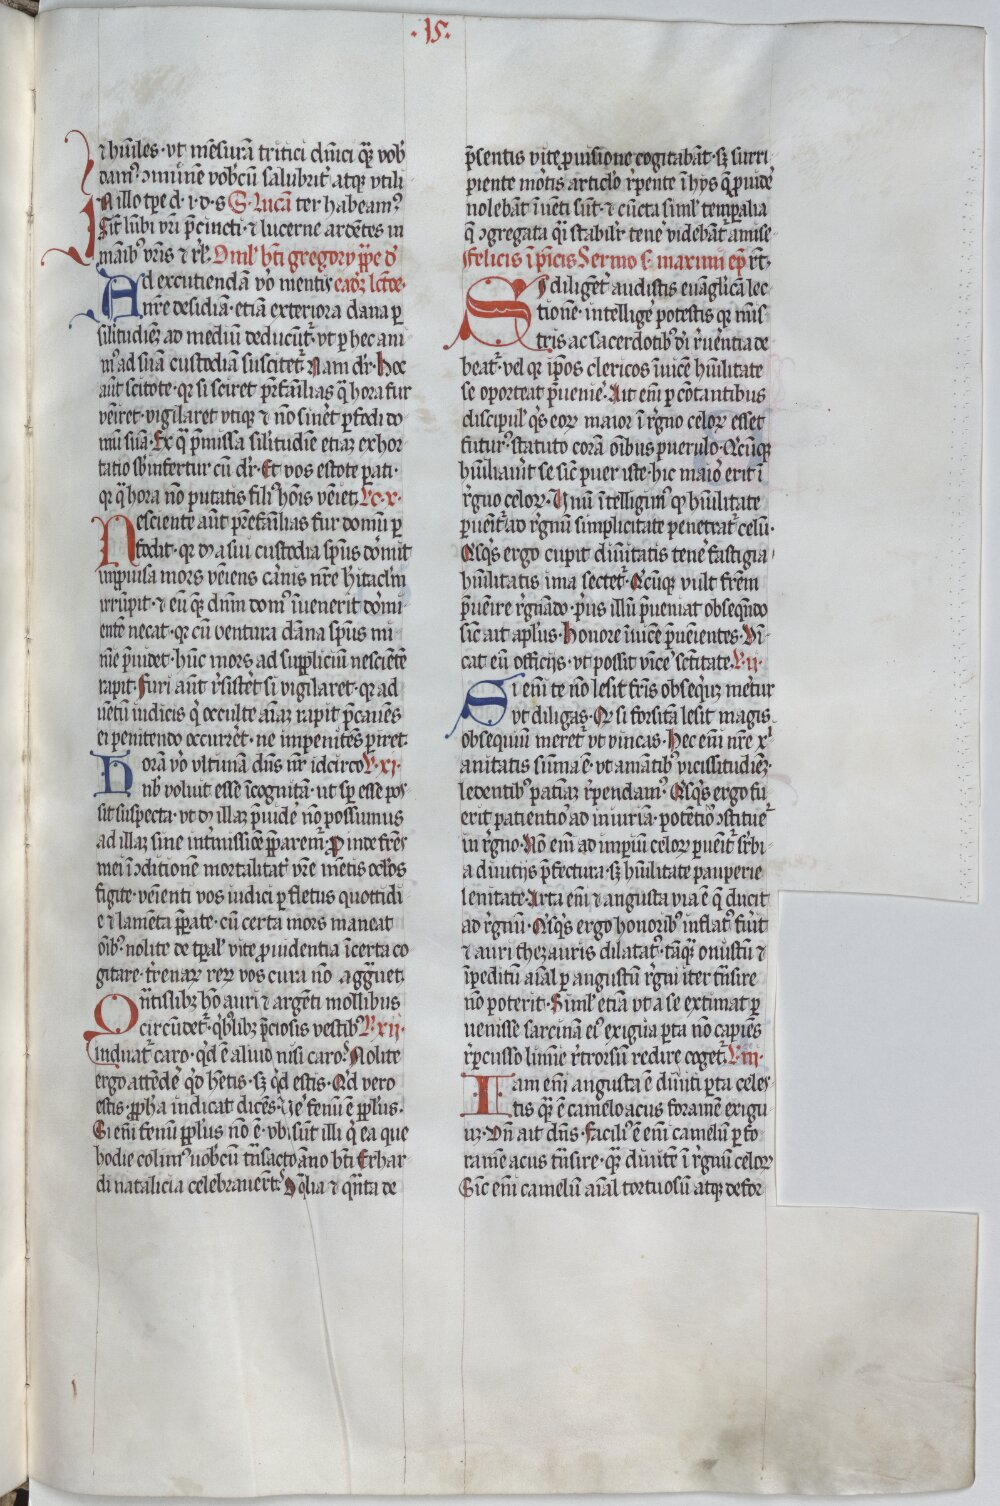 ·15·
⁊ hu̅iles· vt me̅sura̅ tritici diu̅ici q̅ꝫ vob̅
damꝰ ↄmune̅ vob̅cu̅ salubrit̾ atqꝫ vtili
In illo tp̅e d· i· d· s S· Luca̅ ter habeamꝰ
Si̅t lu̅bi vr̅i p̅cincti· ⁊ lucerne arde̅tes in
ma̅ibꝰ vr̅is ⁊ rl̅· Omil̅ bt̅i gregorÿ pp̅e d̅
Ad excutienda̅ vo̅ mentis eadꝫ lc̅o̅e·
nr̅e desidia̅· etia̅ exteriora dana ꝑ
silitudieꝫ ad mediu̅ deducu̅t̾· vt ꝑ hec ani
mꝰ ad sua̅ custodia̅ suscitet̾· Nam dr̅· Hoc
au̅t scitote· qꝛ si sciret pr̅fa̅ilias q̅ hora fur
ve̅iret· vigilaret vtiqꝫ ⁊ no̅ sin̅et ꝑfodi do
mu̅ sua̅· Ex q̅ p̅missa silitudie̅ etiaꝫ exhor
tatio sb̅infertur cu̅ dr̅· Et vos estote p̅ati·
qꝛ q̅ hora no̅ putatis filiꝰ ho̅is ve̅iet· Lc· x·
Nesciente au̅t pr̅efa̅ilias fur domu̅ ꝑ
fodit· qꝛ du̅ a sui custodia sp̅us dormit
improuisa mors ve̅iens carnis nr̅e h̅itaclm̅
irru̅pit· ⁊ eu̅ que̅ dn̅m domꝰ i̅uenerit dormi
ente̅ necat· qꝛ cu̅ ventura da̅na sp̅us mi
nie p̅uidet· hu̅c mors ad suppliciu̅ nescie̅te̅
rapit· Furi au̅t r̅sistet̾ si vigilaret· qꝛ ad
ue̅tu̅ iudicis q̅ occulte ai̅aꝫ rapit p̅caue̅s
ei penitendo occurr̅et· ne impenite̅s ꝑiret·
Hora̅ vo̅ vltima̅ dn̅s nr̅ idcirco L· xi·
nb̅ voluit esse i̅cognita̅· ut sꝑ esse pos
sit suspecta· vt du̅ illaꝫ p̅uide̅ no̅ possumus
ad illaꝫ sine int̾missio̅e pp̅aremꝰ· Proinde fr̅es
mei i̅ ↄditione̅ mortalitat̾ vr̅e me̅tis oc̅los
figite· ve̅ienti vos iudici ꝑ fletus quottidi
e ⁊ lame̅ta pp̅ate· cu̅ certa mors maneat
o̅ibꝰ nolite de tp̅al̅ vite ꝓuidentia i̅certa co
gitare· t̅renarꝫ rerꝫ vos cura no̅ aggrauet·
Qn̅tislibꝫ ho̅ auri ⁊ arge̅ti mollibus
circu̅det̾· q̅bꝰlibꝫ p̅ciosis vestibꝰ L· xii·
induat̾ caro· qd̅ e̅ aliud nisi caro? Nolite
ergo atte̅de̅ qd̅ h̅etis· sꝫ qd̅ estis· Qd̅ vero
estis· ꝓph̅a indicat dice̅s· Ve̅ fenu̅ e̅ pp̅lus·
Si eni̅ fenu̅ pp̅lus no̅ e̅· vbi su̅t illi q̅ ea que
hodie colimꝰ uob̅cu̅ tr̅nsacto a̅no bt̅i Erhar
di natalicia celebrauer̅t? O q̅lia ⁊ q̅nta de
p̅sentis vite ꝓuisione cogitaba̅t· sꝫ surri
piente mo̅tis articl̅o r̅pente i̅ hÿs q̅ ꝑuide̅
nolebant i̅ue̅ti su̅t· ⁊ cu̅cta siml̅ temp̅alia
q̅ ↄgregata q̅i stabilr̅ tene̅ videba̅t̾ amise
Felicis i̅ pi̅cis Sermo s̅ maximi ep̅i rt·
Si dilige̅t̾ audistis eua̅glica̅ lec
tione̅· intellige̅ potestis qꝛ mi̅s
tris ac sacerdotibꝰ di̅ r̅uerentia de
beat̾· vel qꝛ ip̅os clericos i̅uice̅ hu̅ilitate
se oporteat p̅uenir̅e· Ait eni̅ ꝑcotantibus
discipul̅ q̅s eorꝫ maior i̅ r̅gno celorꝫ esset
futurꝰ· statuto cora̅ o̅ibus puerulo· Qcu̅qꝫ
hu̅iliau̅it se sic̅ puer iste· hic maior̅ erit i̅
r̅gno celorꝫ· Vnu̅ i̅telligimꝰ qꝫ hu̅ilitate
ꝑueit̾ ad r̅gnu̅ simplicitate penetrat̾ celu̅·
Qsq̅s ergo cupit diui̅tatis tene̅ fastigia
hu̅ilitatis ima sectet̾· Qcu̅qꝫ vult fr̅em
p̅ueire r̅gna̅do· p̅us illu̅ p̅ueniat obseque̅do
sic̅ ait apl̅us· Honore i̅uice̅ p̅ueientes· Vi̅
cat eu̅ officijs· vt possit vi̅ce̅ sc̅titate· L· ii·
Si eni̅ te no̅ lesit fr̅is obsequiꝫ metur
vt diligas· Qꝛ si forsita̅ lesit magis
obsequiu̅ meret̾ vt vincas· Hec eni̅ nr̅e xi̅
anitatis su̅ma e̅· vt ama̅tibꝰ vicissitudieꝫ·
ledentibꝰ patiaꝫ r̅pendamꝰ· Qsq̅s ergo fu
erit patientior̅ ad iniuria̅· potentior̅ ↄstitue̅t̾
in r̅gno· No̅ eni̅ ad imperiu̅ celorꝫ ꝑueit̾ s̅rbi
a diuitijs p̅fectura· sꝫ hu̅ilitate paup̅erie
lenitate· Arta eni̅ ⁊ angusta via e̅ q̅ ducit
ad r̅gnu̅· Qsq̅s ergo honoribꝰ inflatꝰ fu̅it
⁊ auri thezauris dilatatꝰ· ta̅qꝫ onustu̅ ⁊
i̅peditu̅ ai̅al ꝑ angustu̅ r̅gni iter tr̅nsire
no̅ poterit· Siml̅ etia̅ vt a se extimat ꝑ
venisse sarcina̅ eiꝰ exigua porta no̅ capie̅s
r̅percusso limi̅e r̅trorsu̅ redire coget̾· L· iii·
Iam eni̅ angusta e̅ diuiti porta celes
tis qꝫ e̅ camelo acus forame̅ exigu
uꝫ· Vn̅ ait dn̅s· Faciliꝰ e̅ eni̅ camelu̅ ꝑ fo
rame̅ acus tr̅nsire· qꝫ diuite̅ i̅ r̅gnu̅ celorꝫ
Sic̅ eni̅ camelu̅ ai̅al tortuosu̅ atqꝫ defor